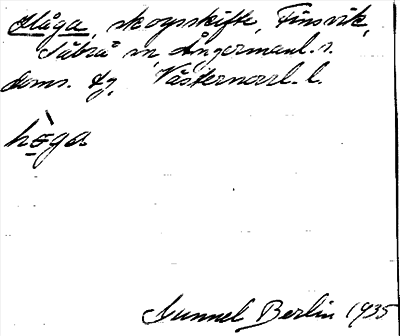 Håga, skogsskifte, Finsvik,
Säbrå sn, Ångermanl. s.
doms. tg, Västernorrl. l.
hɷ̀ga
Gunnel Berlin 1935